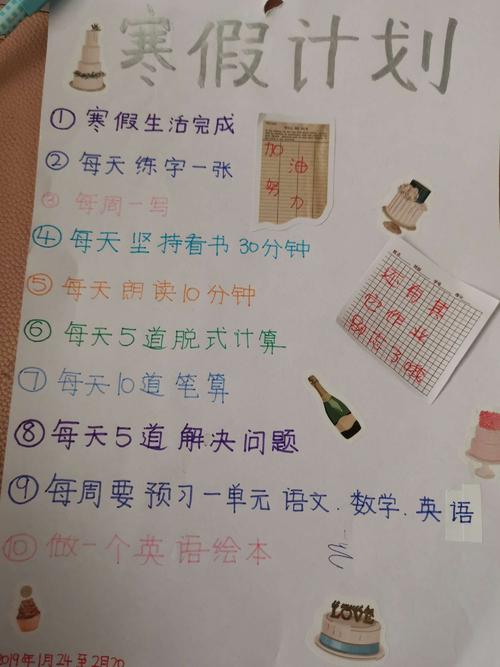 寒假计划
① 寒假生活完成
② 每天练字一张
加油
努力
③ 每周一写
④ 每天坚持看书30分钟
还有其
它作业
别忘了哦
⑤ 每天朗读10分钟
⑥ 每天5道脱式计算
⑦ 每天10道笔算
⑧ 每天5道解决问题
⑨ 每周要预习一单元语文.数学.英语
⑩ 做一个英语绘本
LOVE
2019年1月24至2月20